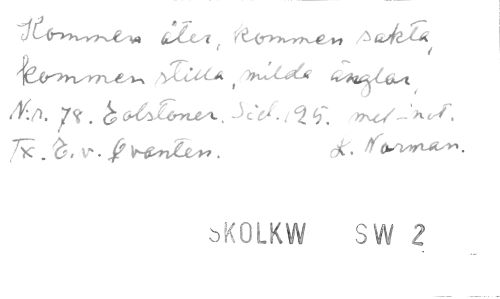 Kommen åter, kommen sakta,
kommen stilla, milda änglar,
N:r. 78. Eolstoner. Sid. 125. mel-not.
Tx. E. v. Qvanten. L. Norman.
SKOLKW SW 2